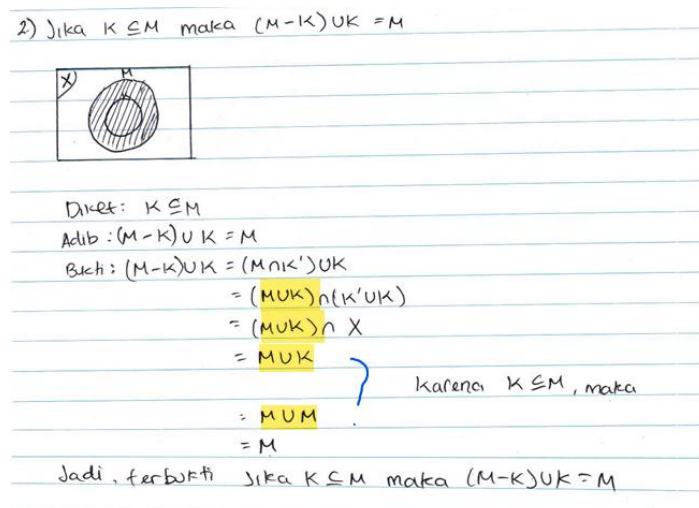 2) Jika K ⊆ M maka (M-K) ∪ K = M
X
M
Diket: K ⊆ M
Adib : (M-K) ∪ K = M
Bukti : (M-K) ∪ K = (M∩K') ∪ K
= (M∪K)∩(K'∪K)
= (M∪K)∩ X
= M∪K
Karena K ⊆ M, maka
= M∪M
= M
Jadi, terbukti Jika K ⊆ M maka (M-K)∪K = M